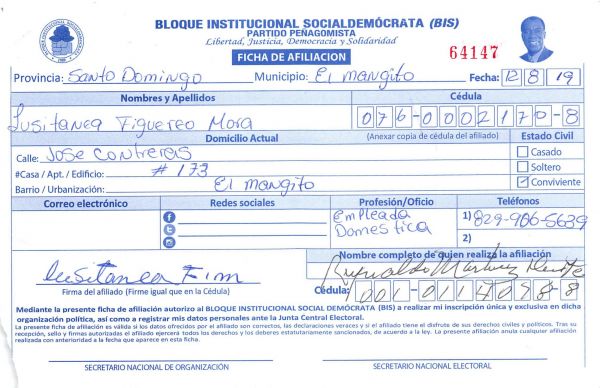 BLOQUE INSTITUCIONAL SOCIALDEMÓCRATA (BIS)
PARTIDO PEÑAGOMISTA
Libertad, Justicia, Democracia y Solidaridad
FICHA DE AFILIACION
64147
Provincia: Santo Domingo Municipio: El mangito Fecha: 12 8 19
Nombres y Apellidos Cédula
Lusitanea Figuereo Mora 076-0002170-8
Domicilio Actual (Anexar copia de cédula del afiliado) Estado Civil
Calle: Jose Contreras Casado
#Casa / Apt. / Edificio: # 173 Soltero
Barrio / Urbanización: El mangito Conviviente
Correo electrónico Redes sociales Profesión/Oficio Teléfonos
Empleada 1) 829-906-5639
Domestica 2)
Nombre completo de quien realizó la afiliación
Lusitanea Fim Reynaldo Martinez
Firma del afiliado (Firme igual que en la Cédula) Cédula: 001-0117098-8
Mediante la presente ficha de afiliación autorizo al BLOQUE INSTITUCIONAL SOCIAL DEMÓCRATA (BIS) a realizar mi inscripción única y exclusiva en dicha
organización política, así como a registrar mis datos personales ante la Junta Central Electoral.
La presente ficha de afiliación es válida si los datos ofrecidos por el afiliado son correctos, las declaraciones veraces y si el afiliado tiene el disfrute de sus derechos civiles y políticos. Tras su
recepción, sello y firmas autorizadas el afiliado ejercerá todos los derechos y los deberes estatutariamente sancionados, de acuerdo a la ley. La presente afiliación anula cualquier afiliación
realizada con anterioridad a la fecha que aparece en esta ficha.
SECRETARIO NACIONAL DE ORGANIZACIÓN SECRETARIO NACIONAL ELECTORAL